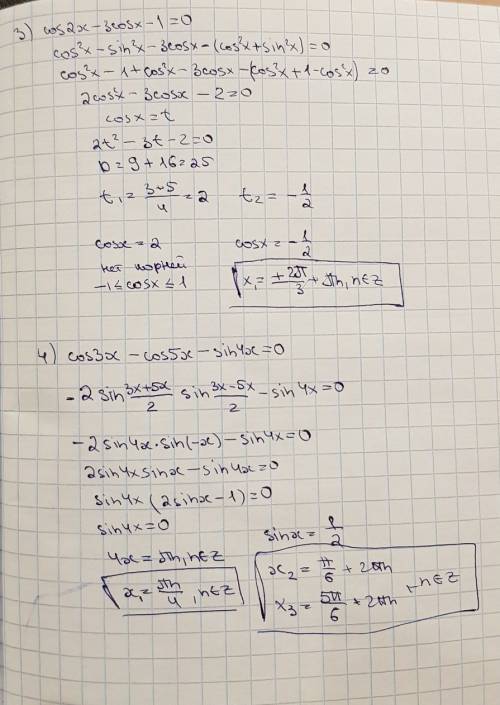 3) cos2x - 3cosx - 1 = 0
cos²x - sin²x - 3cosx - (cos²x + sin²x) = 0
cos²x - 1 + cos²x - 3cosx - (cos²x + 1 - cos²x) = 0
2cos²x - 3cosx - 2 = 0
cosx = t
2t² - 3t - 2 = 0
D = 9 + 16 = 25
t₁ = (3+5)/4 = 2    t₂ = -1/2
cosx = 2    cosx = -1/2
нет корней
-1 ≤ cosx ≤ 1    x₁ = ±2π/3 + πn, n∈Z
4) cos3x - cos5x - sin4x = 0
-2 sin (3x+5x)/2 sin (3x-5x)/2 - sin4x = 0
-2sin4x·sin(-x) - sin4x = 0
2sin4x sinx - sin4x = 0
sin4x (2sinx - 1) = 0
sin4x = 0    sinx = 1/2
4x = πn, n∈Z    x₂ = π/6 + 2πn
x₁ = πn/4, n∈Z    x₃ = 5π/6 + 2πn, n∈Z